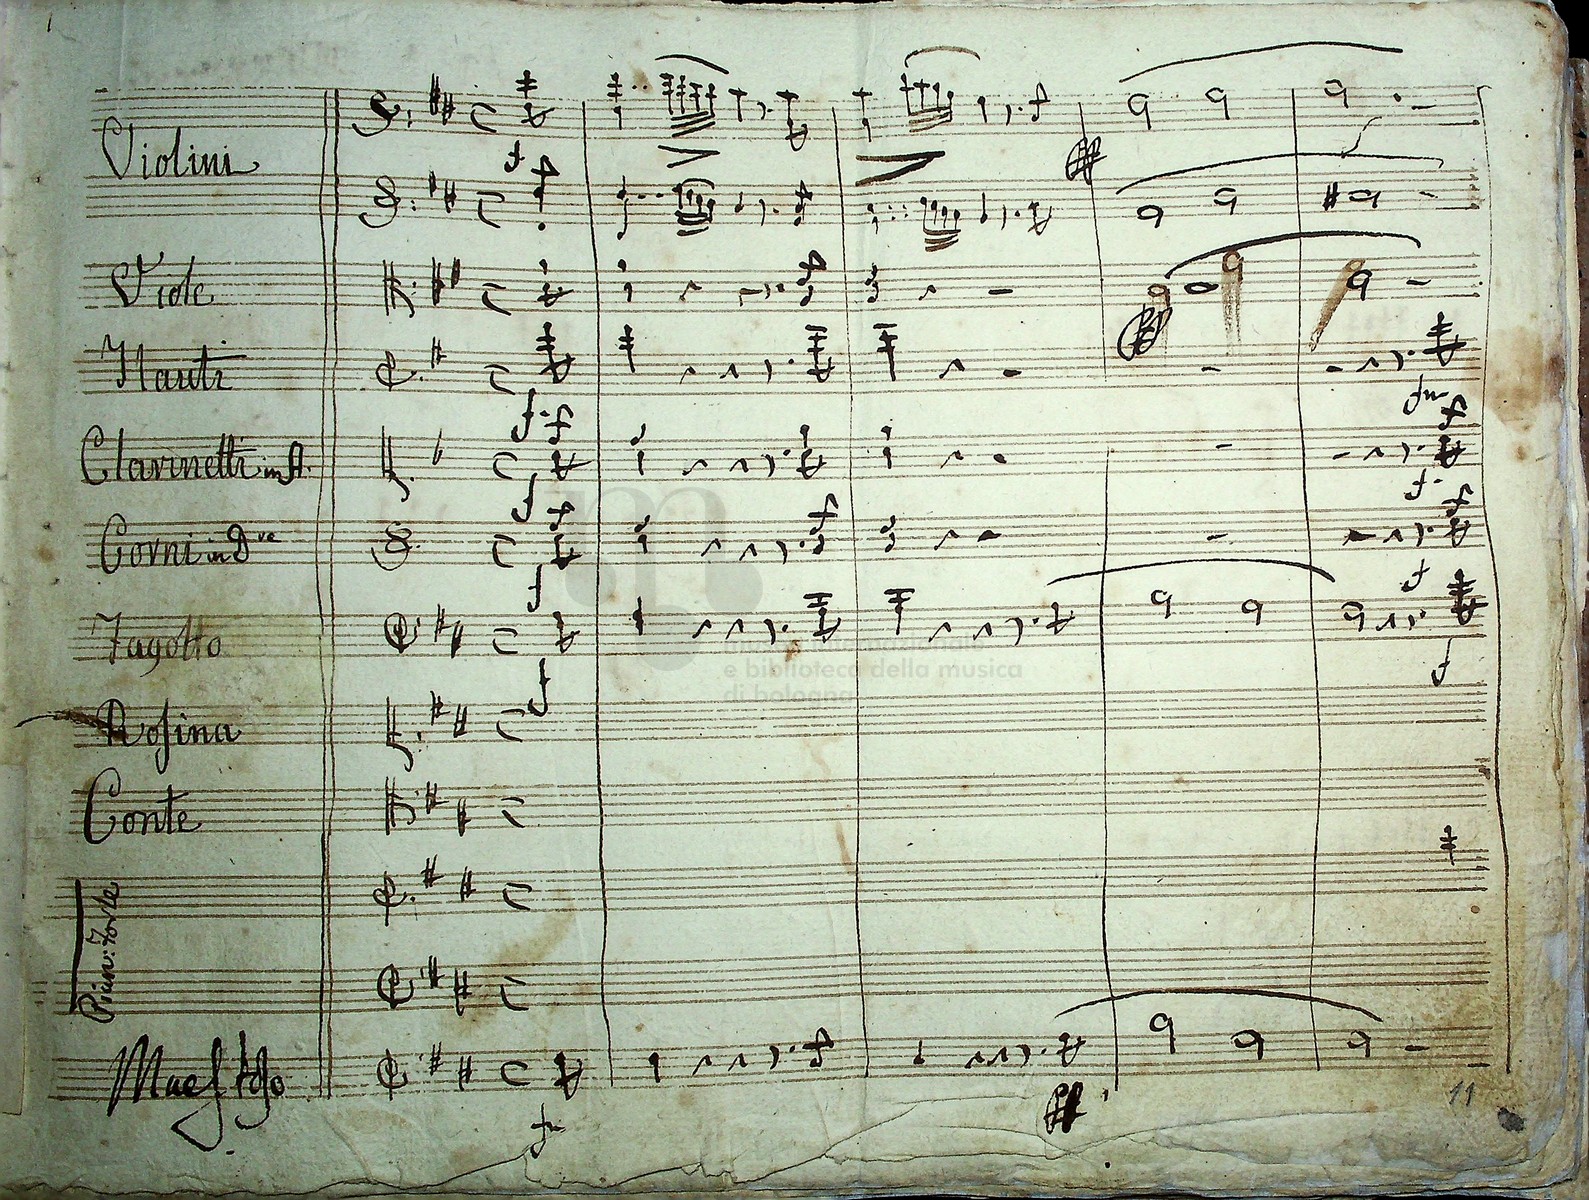 Violini
Viole
Flauti
Clarinetti in A.
Corni in D re
Fagotto
museo internazionale
e biblioteca della musica
di bologna
Rosina
Conte
Pian: Forte
Maestoso
11